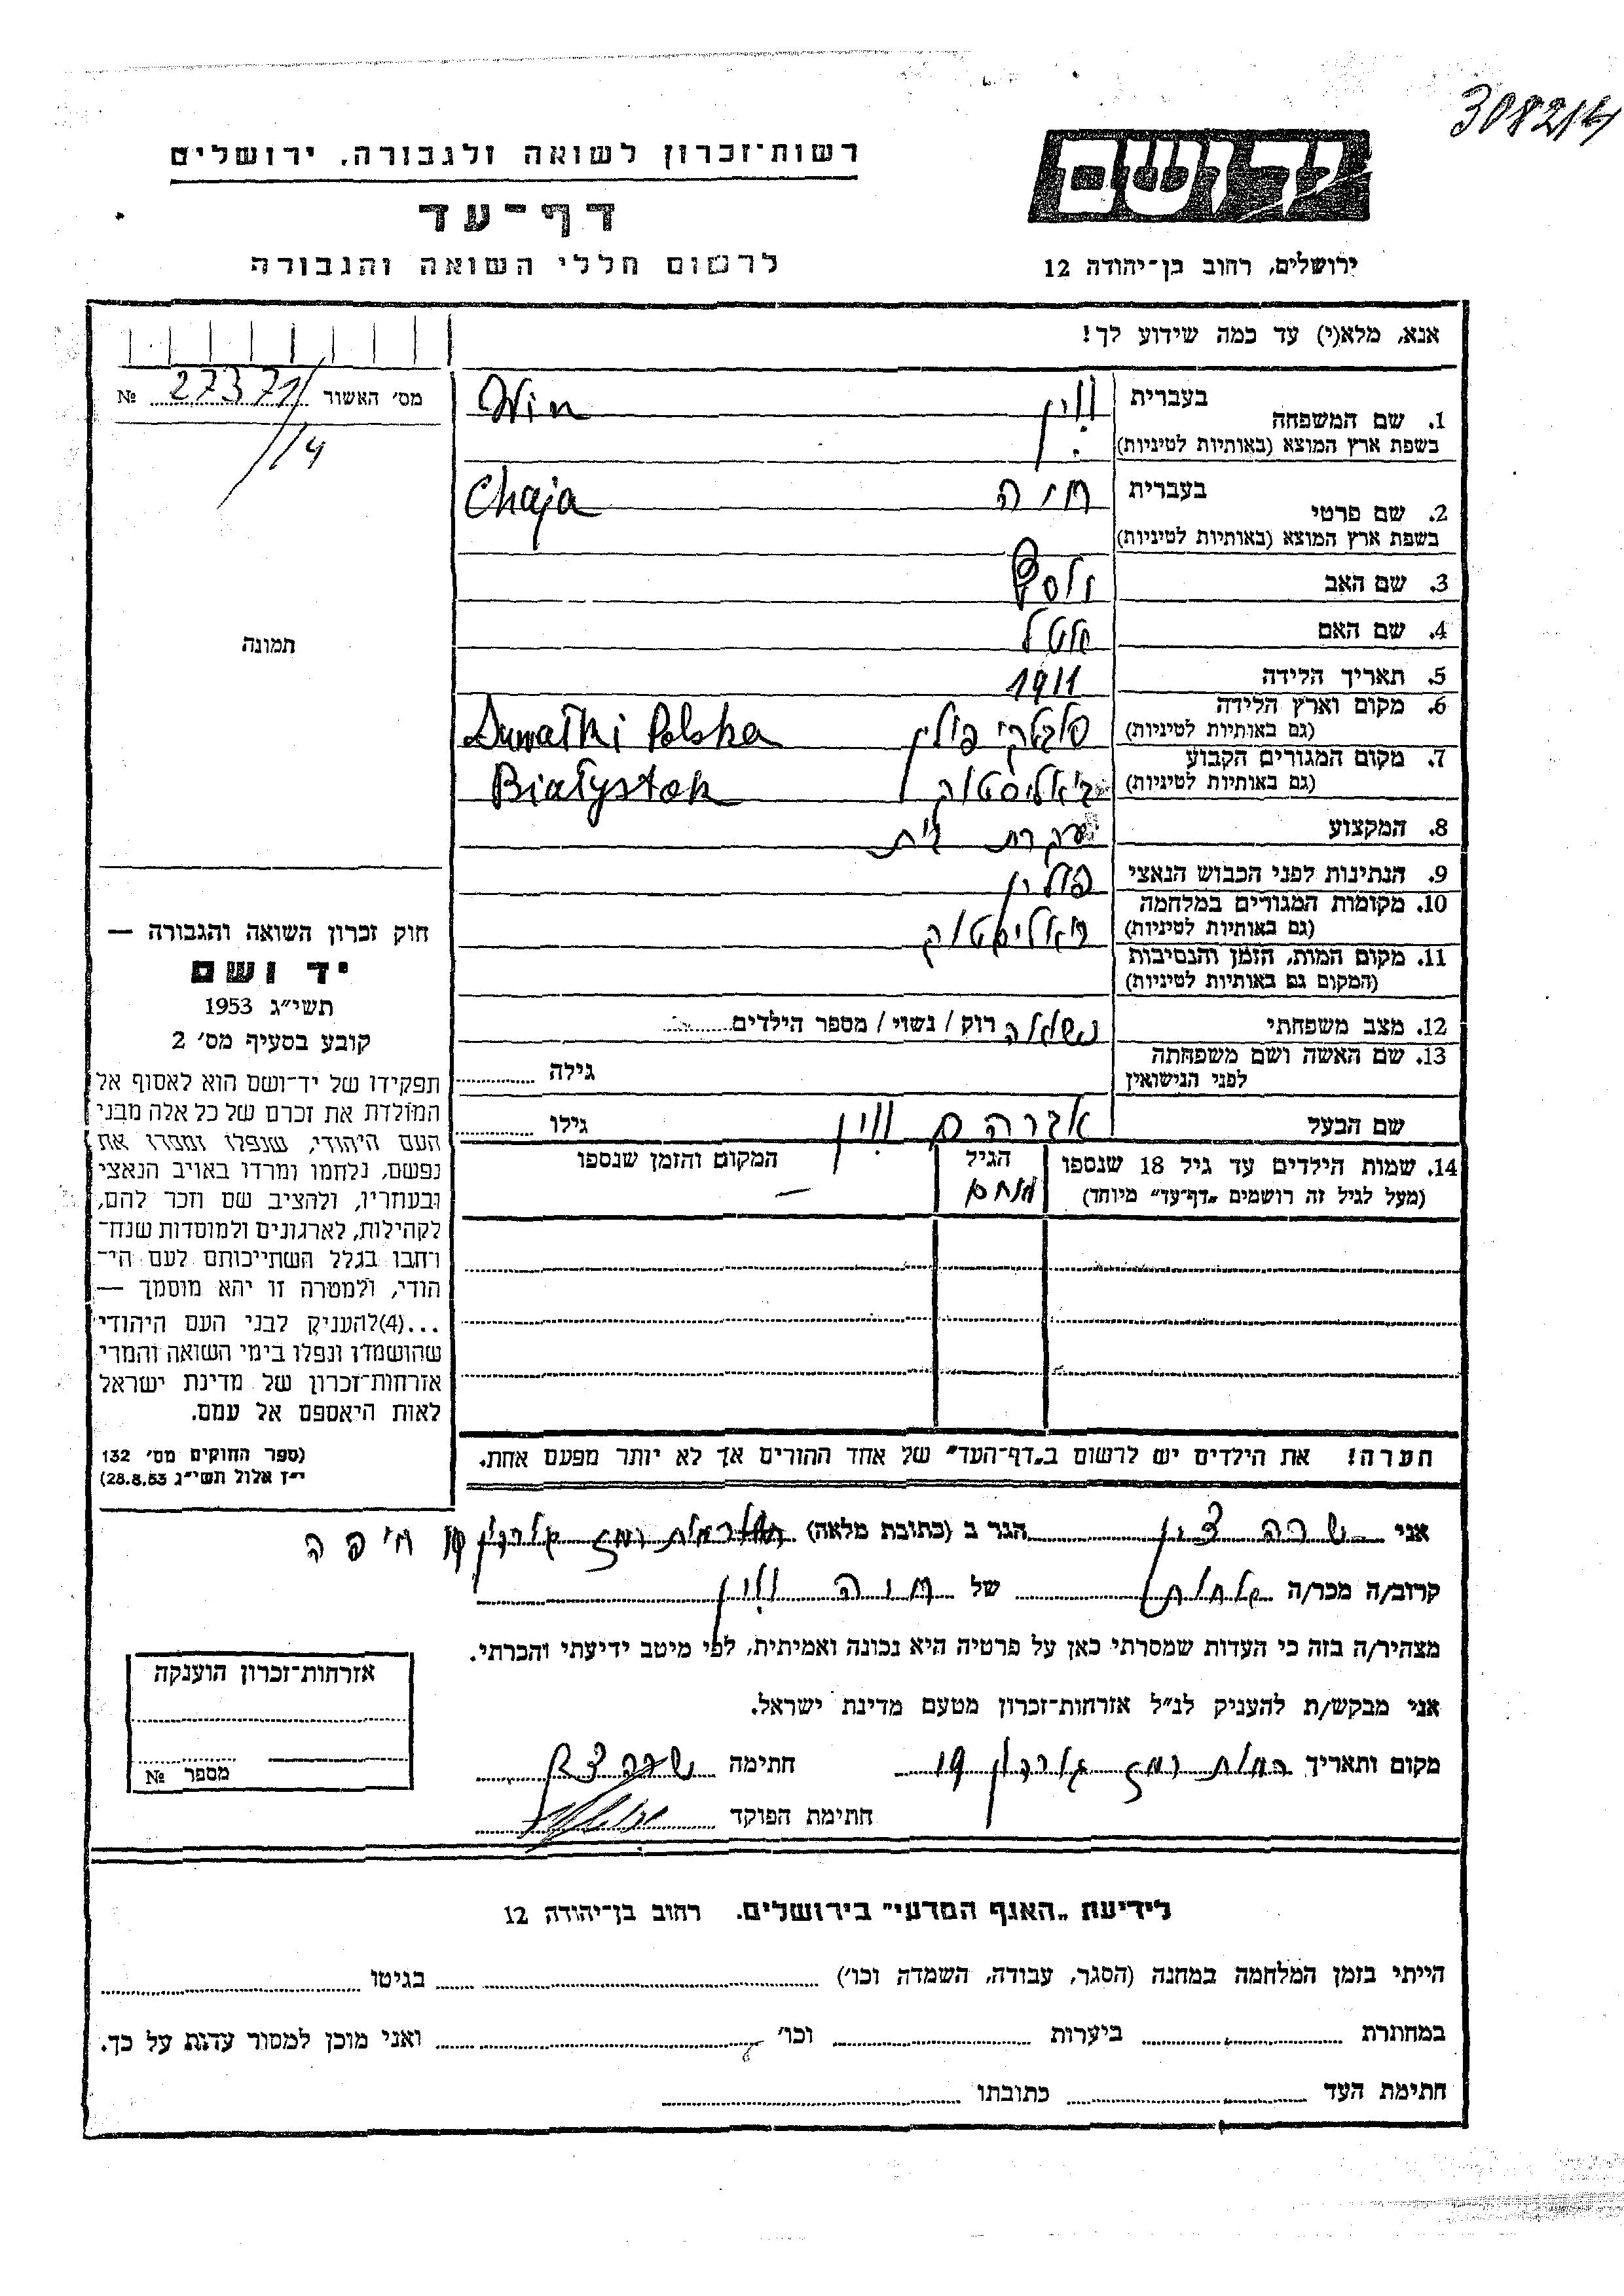 308214
רשות־זכרון לשואה ולגבורה, ירושלים
יד ושם
דף־עד
לרשום חללי השואה והגבורה
ירושלים, רחוב בן־יהודה 12
אנא, מלא(י) עד כמה שידוע לך!
מס׳ האשור 27371 №
/4
1. שם המשפחה בעברית ווין Win
בשפת ארץ המוצא (באותיות לטיניות)
2. שם פרטי בעברית חיה Chaja
בשפת ארץ המוצא (באותיות לטיניות)
3. שם האב
4. שם האם
5. תאריך הלידה 1911
6. מקום וארץ הלידה סובלקי פולין Suwałki Polska
(גם באותיות לטיניות)
7. מקום המגורים הקבוע ביאליסטוק Białystok
(גם באותיות לטיניות)
8. המקצוע עקרת בית
9. הנתינות לפני הכבוש הנאצי פולין
10. מקומות המגורים במלחמה ביאליסטוק
(גם באותיות לטיניות)
11. מקום המות, הזמן והנסיבות
(המקום גם באותיות לטיניות)
12. מצב משפחתי נשואה רוק / נשוי / מספר הילדים
13. שם האשה ושם משפחתה
לפני הנישואין גילה
שם הבעל אברהם ווין גילו
14. שמות הילדים עד גיל 18 שנספו הגיל המקום והזמן שנספו
(מעל לגיל זה רושמים „דף־עד״ מיוחד) —
הערה! את הילדים יש לרשום ב„דף־העד״ של אחד ההורים אך לא יותר מפעם אחת.
תמונה
חוק זכרון השואה והגבורה —
יד ושם
תשי״ג 1953
קובע בסעיף מס׳ 2
תפקידו של יד־ושם הוא לאסוף אל
המולדת את זכרם של כל אלה מבני
העם היהודי, שנפלו ומסרו את
נפשם, נלחמו ומרדו באויב הנאצי
ובעוזריו, ולהציב שם וזכר להם,
לקהילות, לארגונים ולמוסדות שנח־
רחבו בגלל השתייכותם לעם הי־
הודי, ולמטרה זו יהא מוסמך —
...(4)להעניק לבני העם היהודי
שהושמדו ונפלו בימי השואה והמרי
אזרחות־זכרון של מדינת ישראל
לאות היאספם אל עמם.
(ספר החוקים מס׳ 132
י״ז אלול תשי״ג 28.8.53)
אני שרה צין הגר ב (כתובת מלאה) רמת רמז גורדון 19 חיפה
קרוב/ה מכר/ה של חיה ווין
מצהיר/ה בזה כי העדות שמסרתי כאן על פרטיה היא נכונה ואמיתית, לפי מיטב ידיעתי והכרתי.
אני מבקש/ת להעניק לנ״ל אזרחות־זכרון מטעם מדינת ישראל.
מקום ותאריך רמת רמז גורדון 19 חתימה שרה צין
חתימת הפוקד
אזרחות־זכרון הוענקה
מספר №
לידיעת „האגף המדעי״ בירושלים. רחוב בן־יהודה 12
הייתי בזמן המלחמה במחנה (הסגר, עבודה, השמדה וכו׳) בגיטו
במחתרת ביערות וכו׳ ואני מוכן למסור עדות על כך.
חתימת העד כתובתו